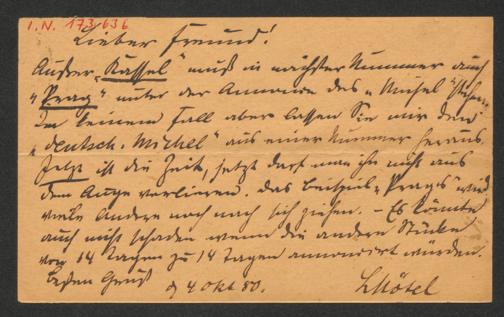 I.N. 173.636
Lieber Freund!
Außer „Kassel“ muß in nächster Nummer auch
„Prag“ unter der Annonce des „Musel“ stehen.
In keinem Fall aber lassen Sie mir den
„deutsch. Michel“ aus einer Nummer heraus.
Jetzt ist die Zeit, jetzt darf man ihn nicht aus
dem Auge verlieren. Das Beispiel „Prags“ wird
viele Andere noch nach sich ziehen. – Es könnte
auch nicht schaden wenn die andere Stücke
von 14 Tagen zu 14 Tagen annoncirt würden.
Besten Gruß
4 Okt 80.